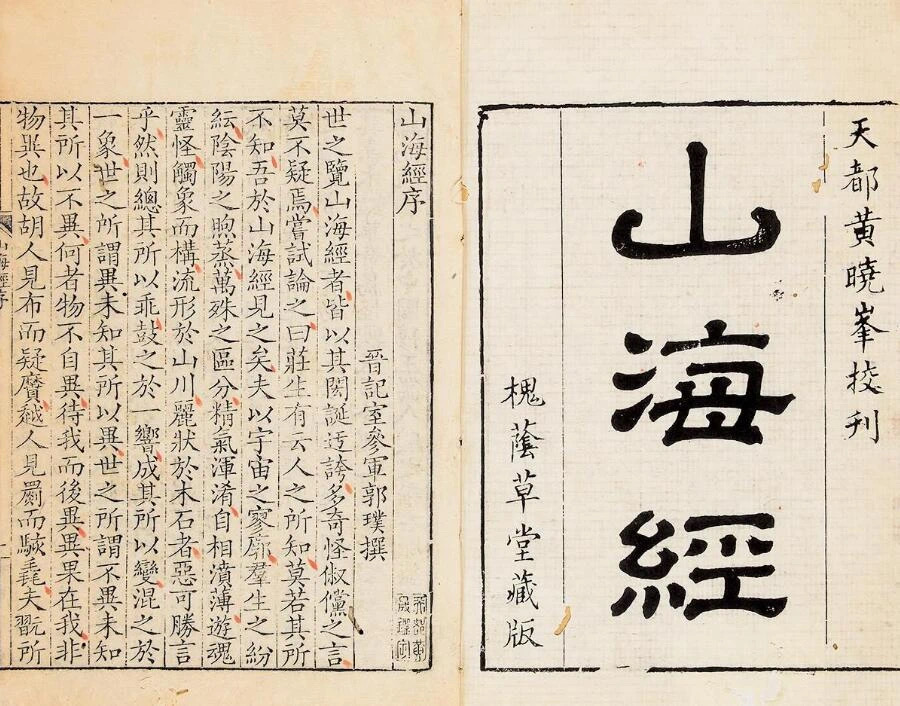 天都黃曉峯挍刊
山海經
槐蔭草堂藏版
山海經序
晉記室參軍郭璞撰
世之覽山海經者皆以其閎誕迂誇多奇怪俶儻之言
莫不疑焉嘗試論之曰莊生有云人之所知莫若其所
不知吾於山海經見之矣夫以宇宙之寥廓羣生之紛
紜陰陽之煦蒸萬殊之區分精氣渾淆自相濆薄遊魂
靈怪觸象而構流形於山川麗狀於木石者惡可勝言
乎然則總其所以乖鼓之於一響成其所以變混之於
一象世之所謂異未知其所以異世之所謂不異未知
其所以不異何者物不自異待我而後異異果在我非
物異也故胡人見布而疑黂越人見罽而駭毳夫翫所
山海經序